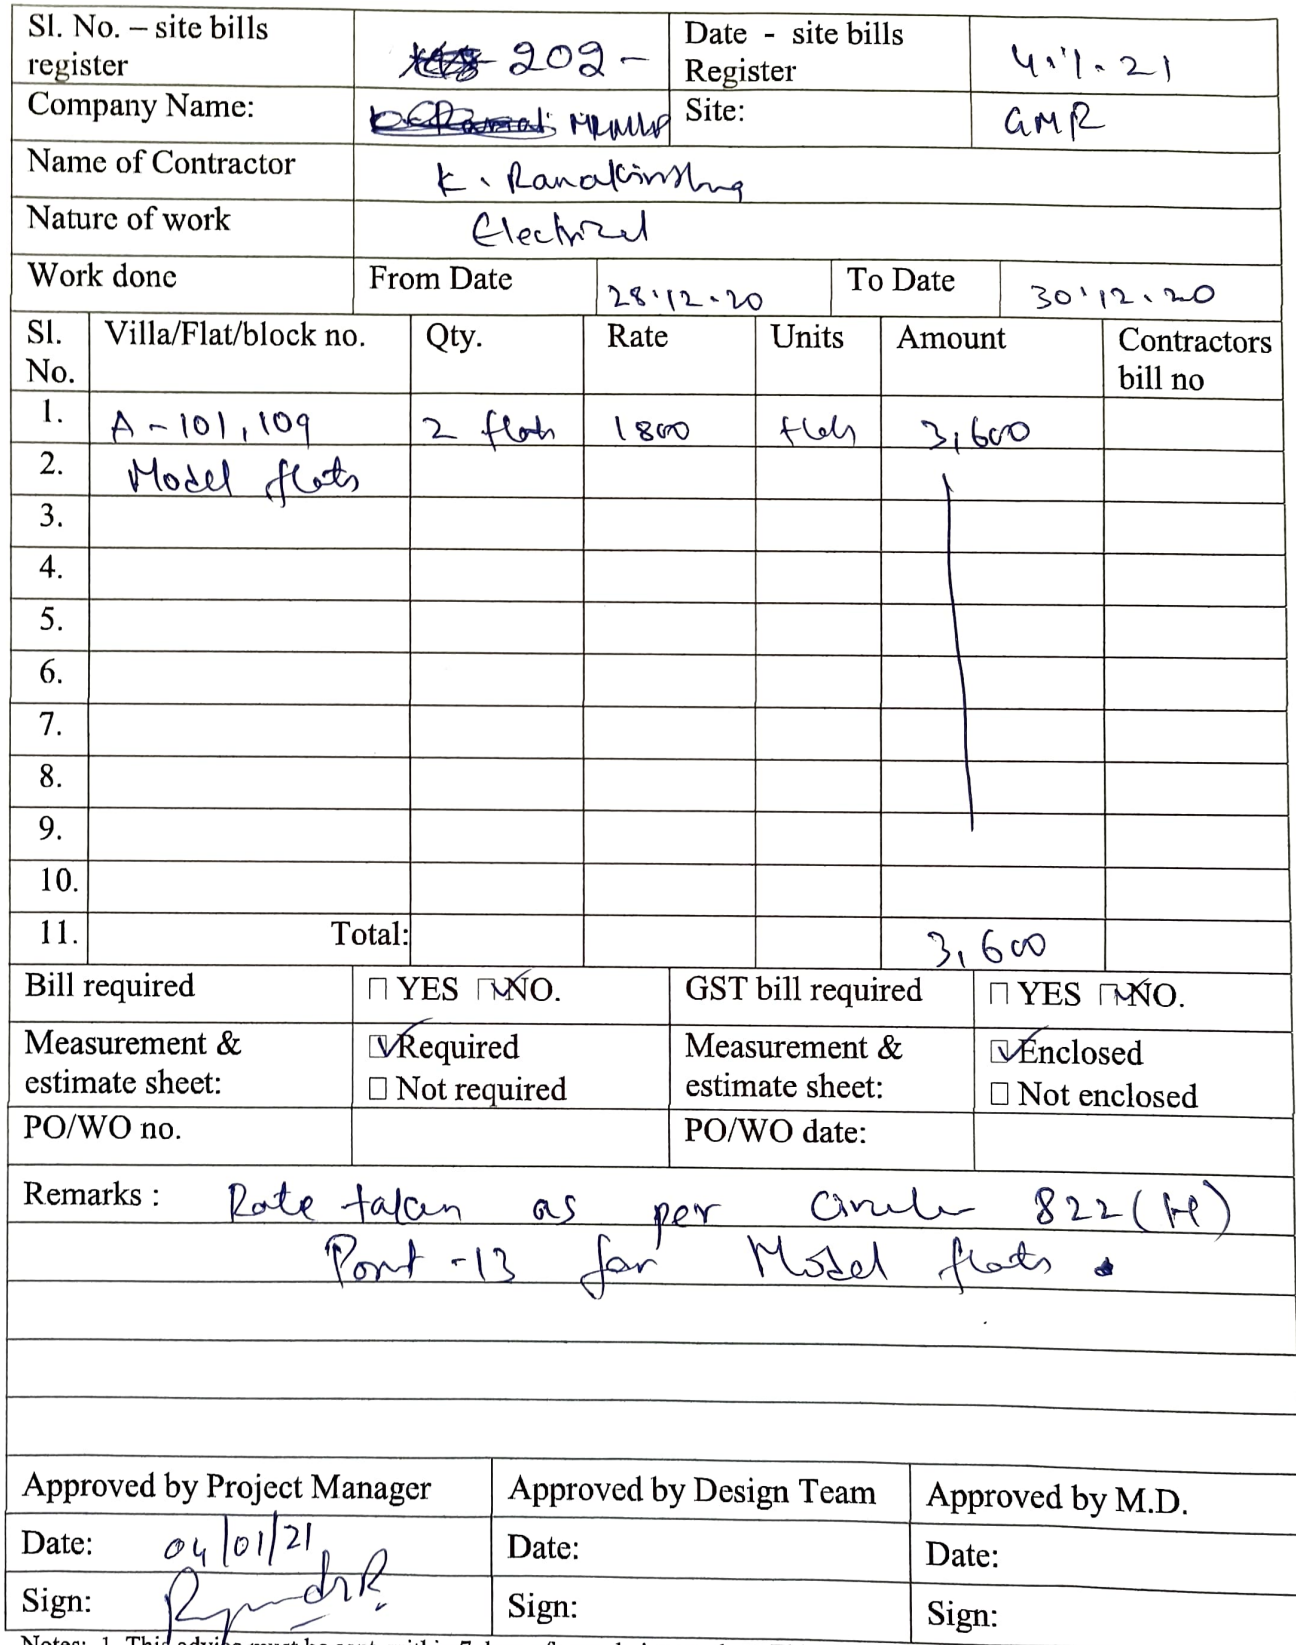 Sl. No. – site bills register 202 - Date - site bills Register 4.1.21
Company Name: MRMLLP Site: GMR
Name of Contractor K.
Nature of work Electrical
Work done From Date 28.12.20 To Date 30.12.20
Sl. No. Villa/Flat/block no. Qty. Rate Units Amount Contractors bill no
1. A - 101, 109 2 flats 1800 flats 3,600
2. Model flats
3.
4.
5.
6.
7.
8.
9.
10.
11. Total: 3,600
Bill required ☐ YES ☑ NO. GST bill required ☐ YES ☑ NO.
Measurement & estimate sheet: ☑ Required ☐ Not required Measurement & estimate sheet: ☑ Enclosed ☐ Not enclosed
PO/WO no. PO/WO date:
Remarks : Rate taken as per 822(H)
Point -13 for Model flats.
Approved by Project Manager Approved by Design Team Approved by M.D.
Date: 04/01/21 Date: Date:
Sign: Sign: Sign: